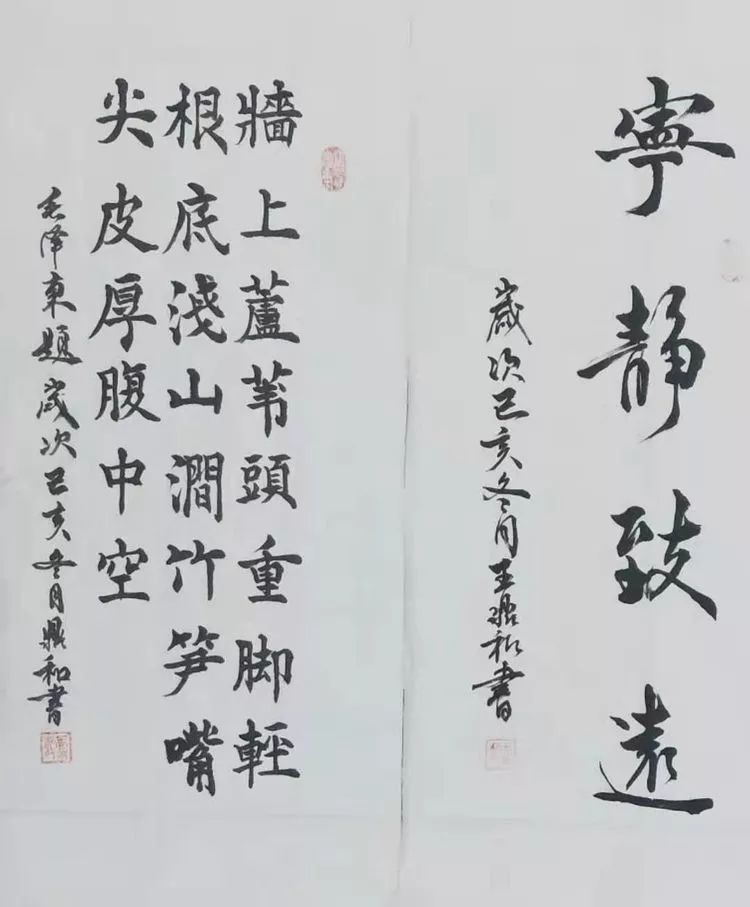 寧靜致遠
歲次己亥冬月王鼎和書
牆上蘆葦頭重脚輕
根底淺山澗竹笋嘴
尖皮厚腹中空
毛泽東題歲次己亥冬月鼎和書